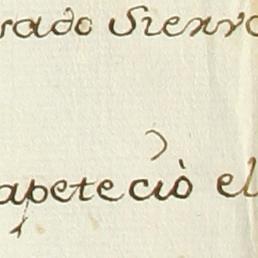 rado Siervo
apeteciò el